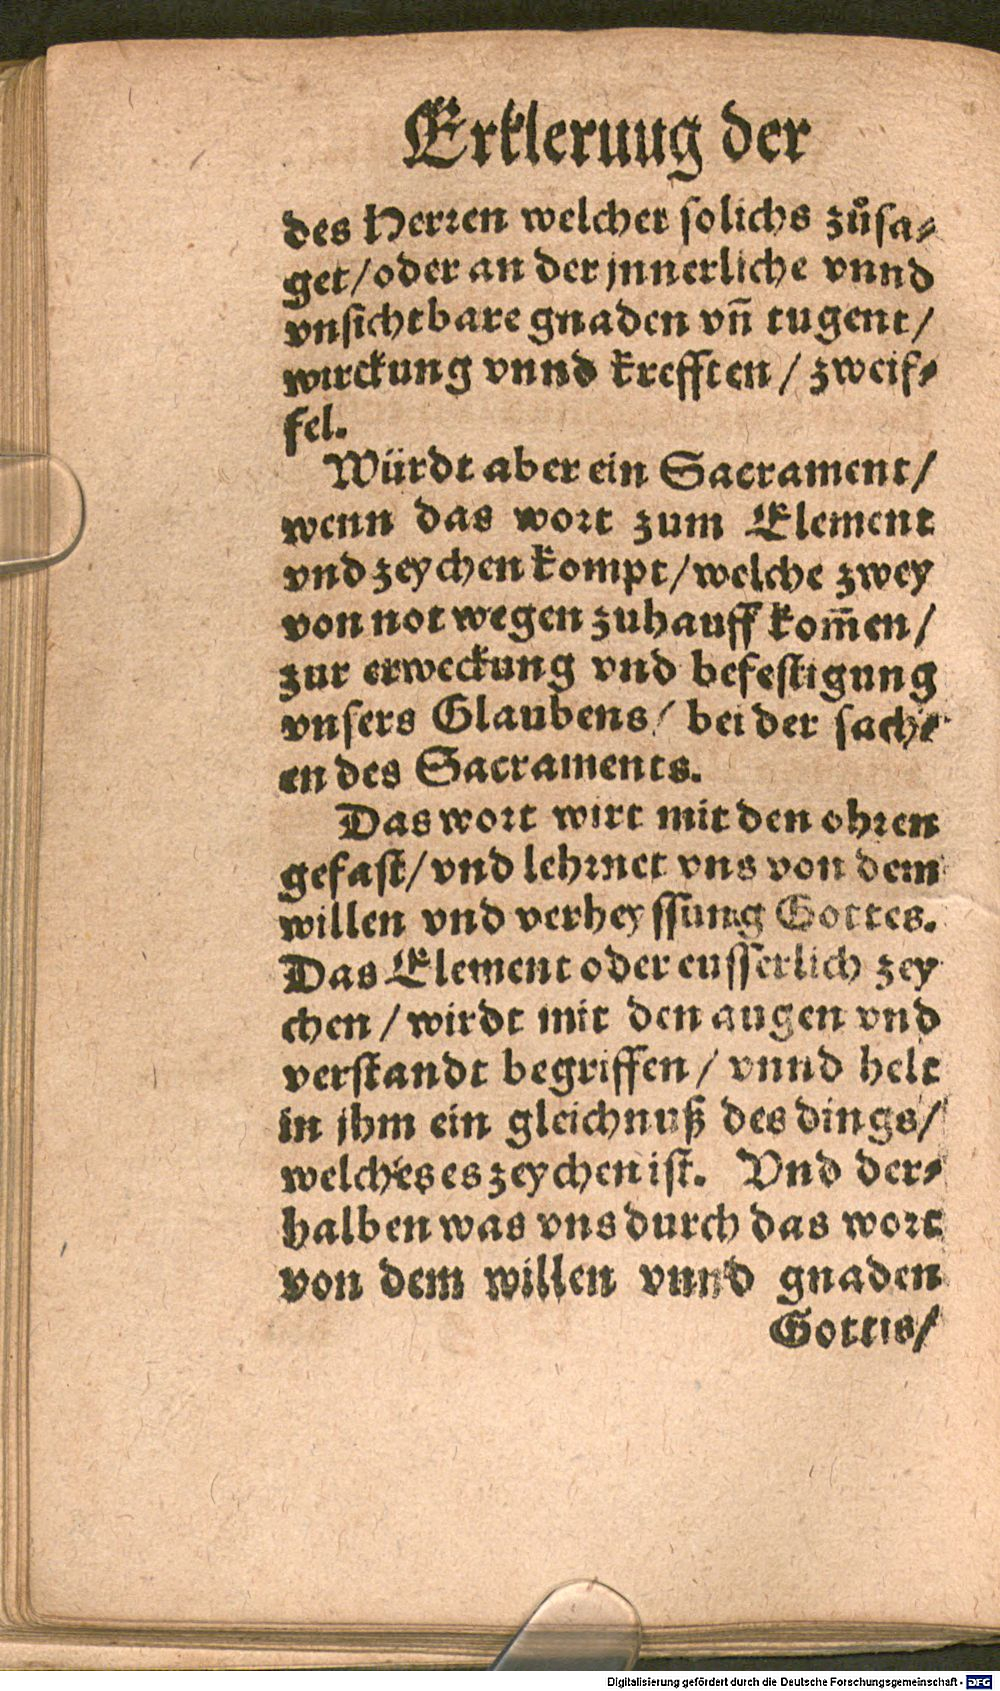 Erklerung der
des Herren welcher solichs zůsa-
get/oder an der jnnerliche vnnd
vnsichtbare gnaden vn̄ tugent/
wirckung vnnd krefften / zweif-
fel.
Würdt aber ein Sacrament/
wenn das wort zum Element
vnd zeychen kompt/welche zwey
von not wegen zuhauff kom̄en/
zur erweckung vnd befestigung
vnsers Glaubens/ bei der sach-
en des Sacraments.
Das wort wirt mit den ohren
gefast/vnd lehrnet vns von dem
willen vnd verheyssung Gottes.
Das Element oder eusserlich zey
chen / wirdt mit den augen vnd
verstandt begriffen / vnnd helt
in jhm ein gleichnuß des dings/
welches es zeychen ist. Vnd der-
halben was vns durch das wort
von dem willen vnnd gnaden
Gottis/
Digitalisierung gefördert durch die Deutsche Forschungsgemeinschaft - DFG